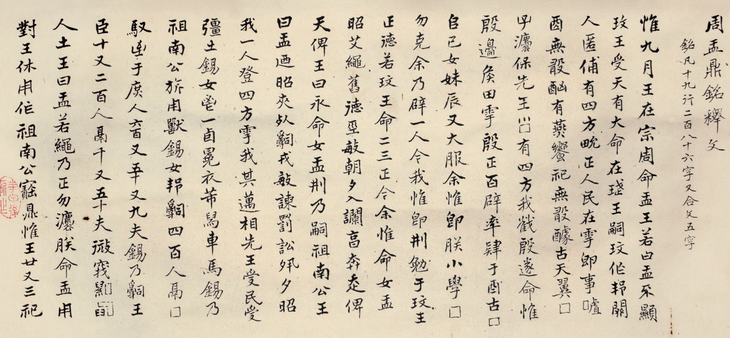 周盂鼎銘釋文
銘凡十九行二百八十六字又合文五字
惟九月王在宗周命盂王若曰盂丕顯
玟王受天有大命在珷王嗣玟作邦闢
人匿俌有四方畯正人民在雩御事嘑
酉無敢酗有柴蒸祀無敢醵古天翼□
子灋保先王□有四方我戡殷遂命惟
殷邊矦田雩殷正百辟率肄于酉古□
𠂤已女妹辰又大服余惟卽朕小學□
勿克余乃辟一人令我惟卽刑勉于玟王
正德若玟王命二三正令余惟命女盂
昭艾繩舊德亟敏朝夕入讕亯奔走俾
天俾王曰永命女盂刑乃嗣祖南公王
曰盂迺昭夾死𤔲戎敏諫罰訟夙夕昭
我一人登四方雩我其遹相先王受民受
彊土錫女鬯一卣冕衣芾舄車馬錫乃
祖南公旂用獸錫女邦𤔲四百人鬲□
馭至于庶人六百又五十又九夫錫乃𤔲王
臣十又二百人鬲十又五十夫徵竄
人土王曰盂若繩乃正勿灋朕命盂用
對王休用作祖南公寶鼎惟王廿又三祀